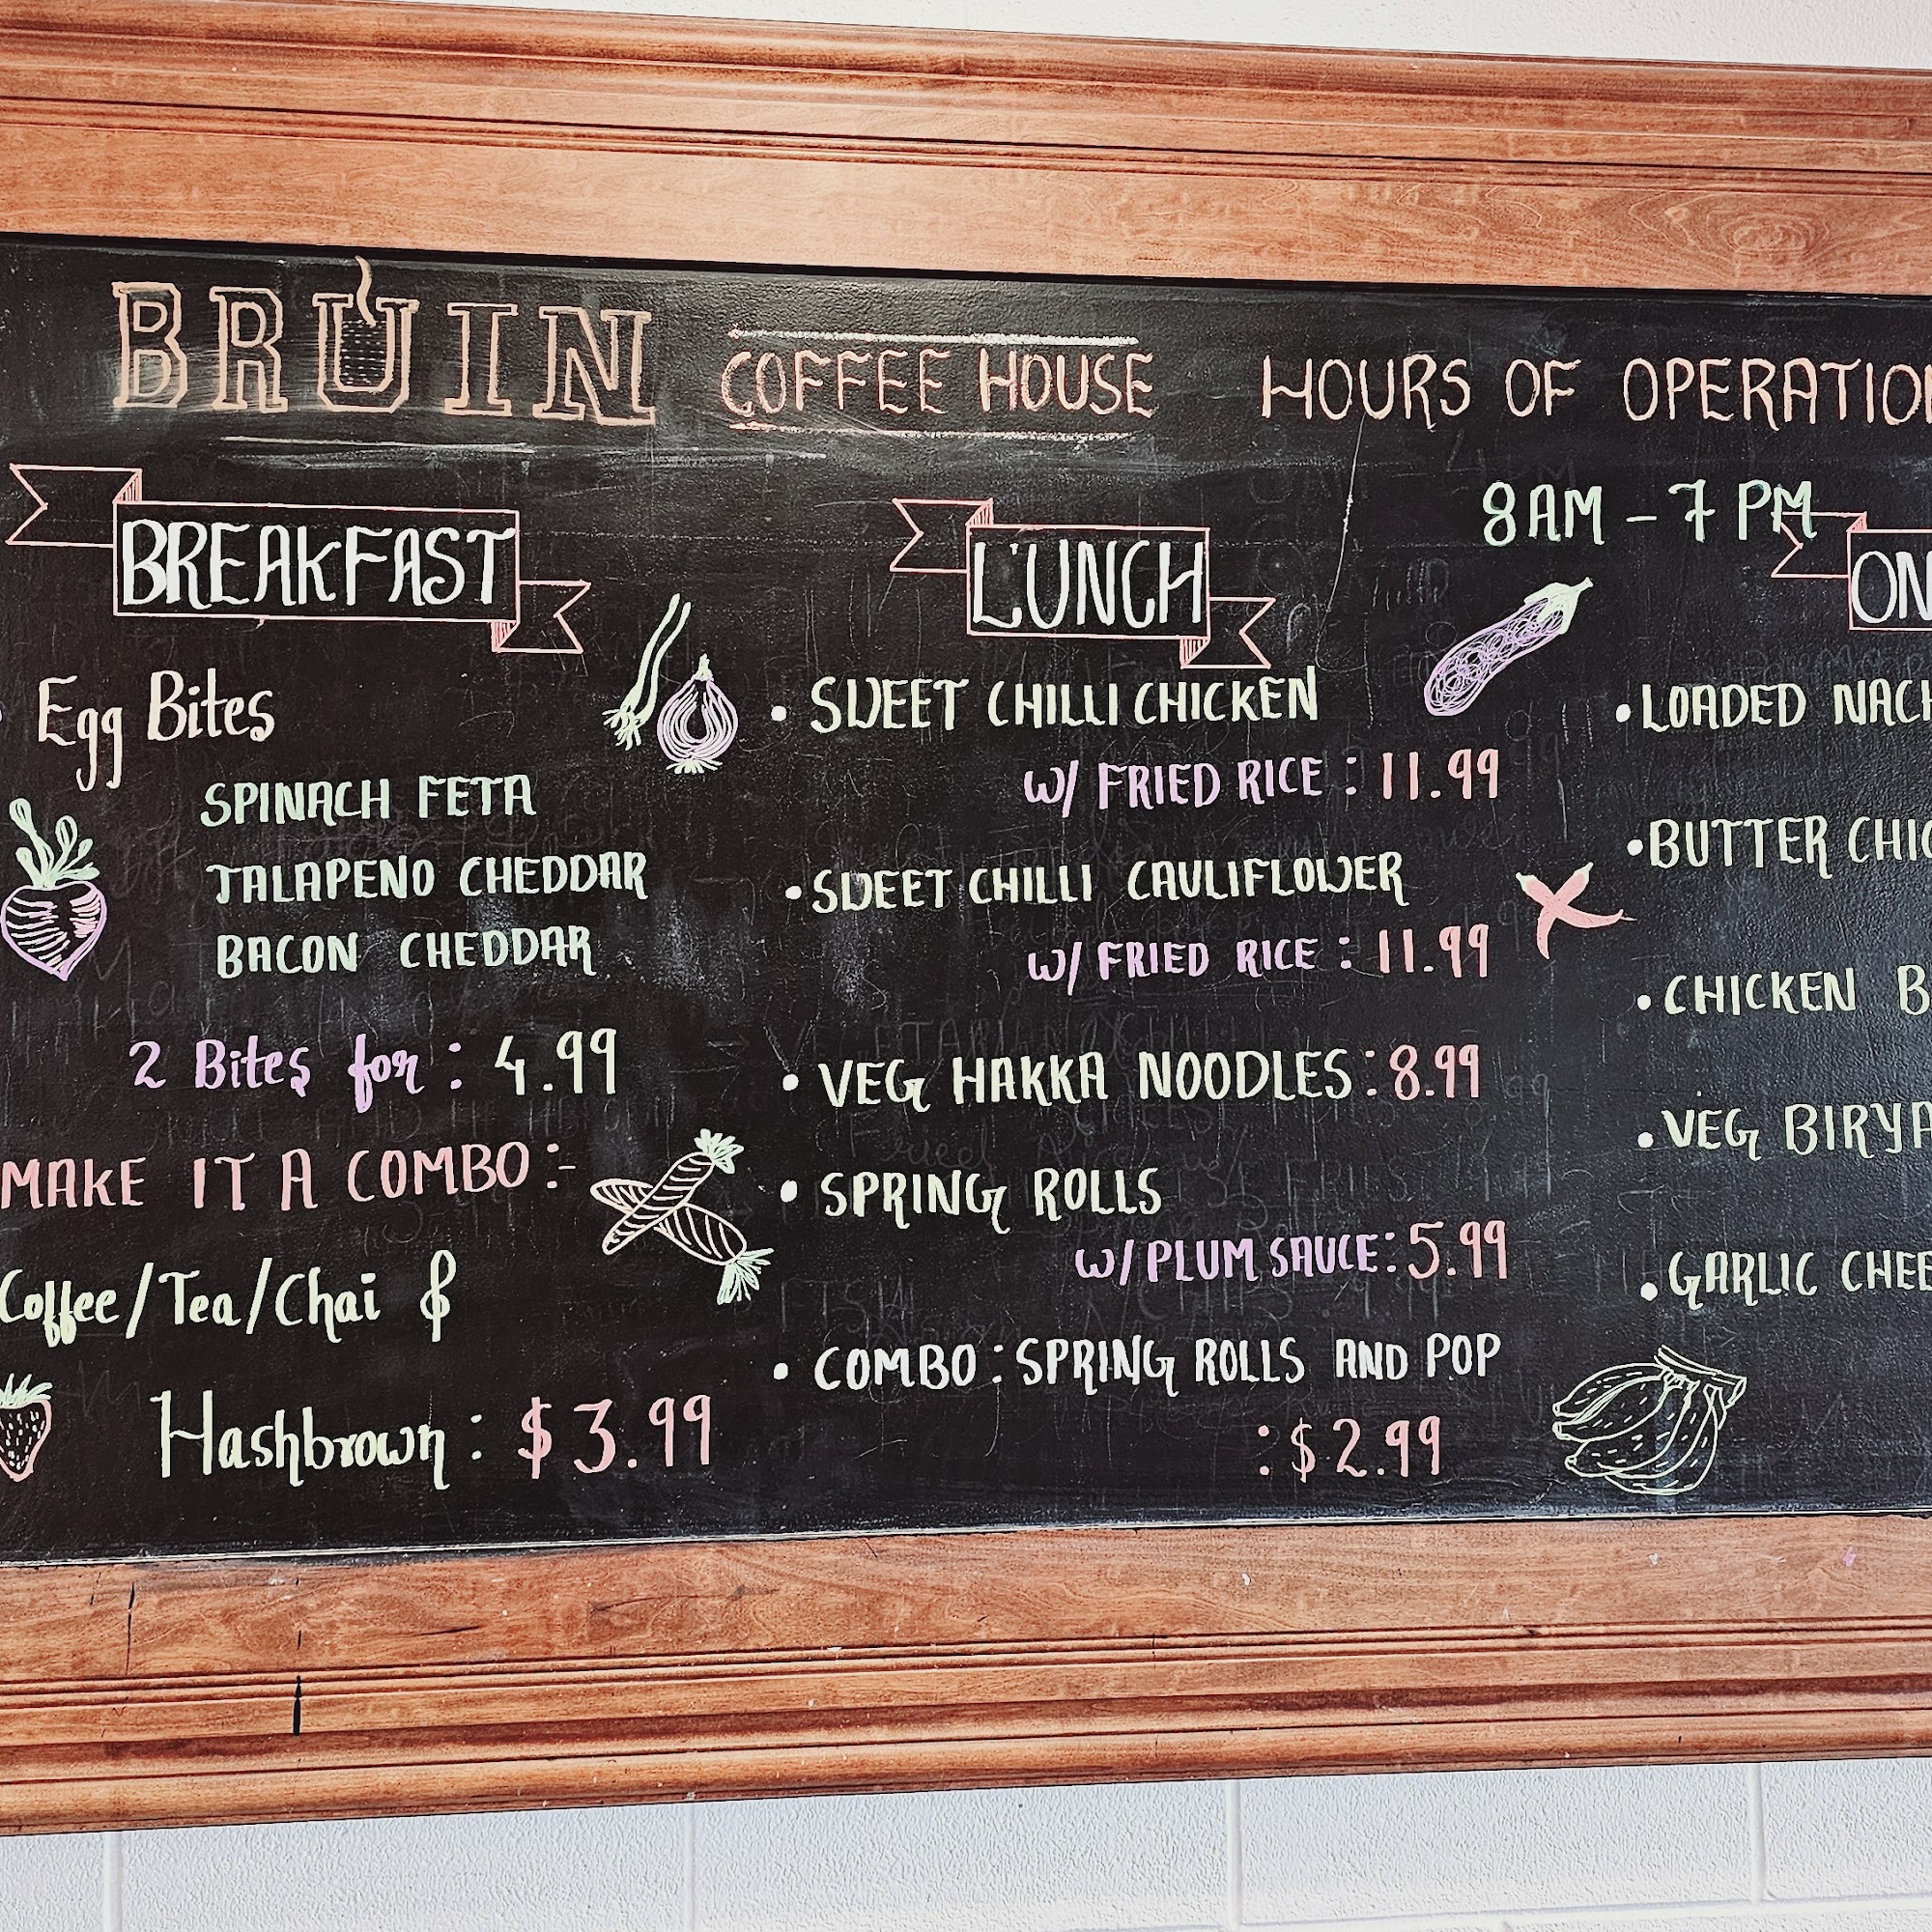 BRUIN COFFEE HOUSE
HOURS OF OPERATION
8AM - 7 PM
BREAKFAST
Egg Bites
SPINACH FETA
JALAPENO CHEDDAR
BACON CHEDDAR
2 Bites for : 4.99
MAKE IT A COMBO :-
Coffee/Tea/Chai &
Hashbrown : $3.99
LUNCH
• SWEET CHILLI CHICKEN
W/ FRIED RICE : 11.99
• SWEET CHILLI CAULIFLOWER
W/ FRIED RICE : 11.99
• VEG HAKKA NOODLES : 8.99
• SPRING ROLLS
W/ PLUM SAUCE : 5.99
• COMBO : SPRING ROLLS AND POP
: $2.99
ON
• LOADED NACH
• BUTTER CHIC
• CHICKEN B
• VEG BIRYA
• GARLIC CHEE